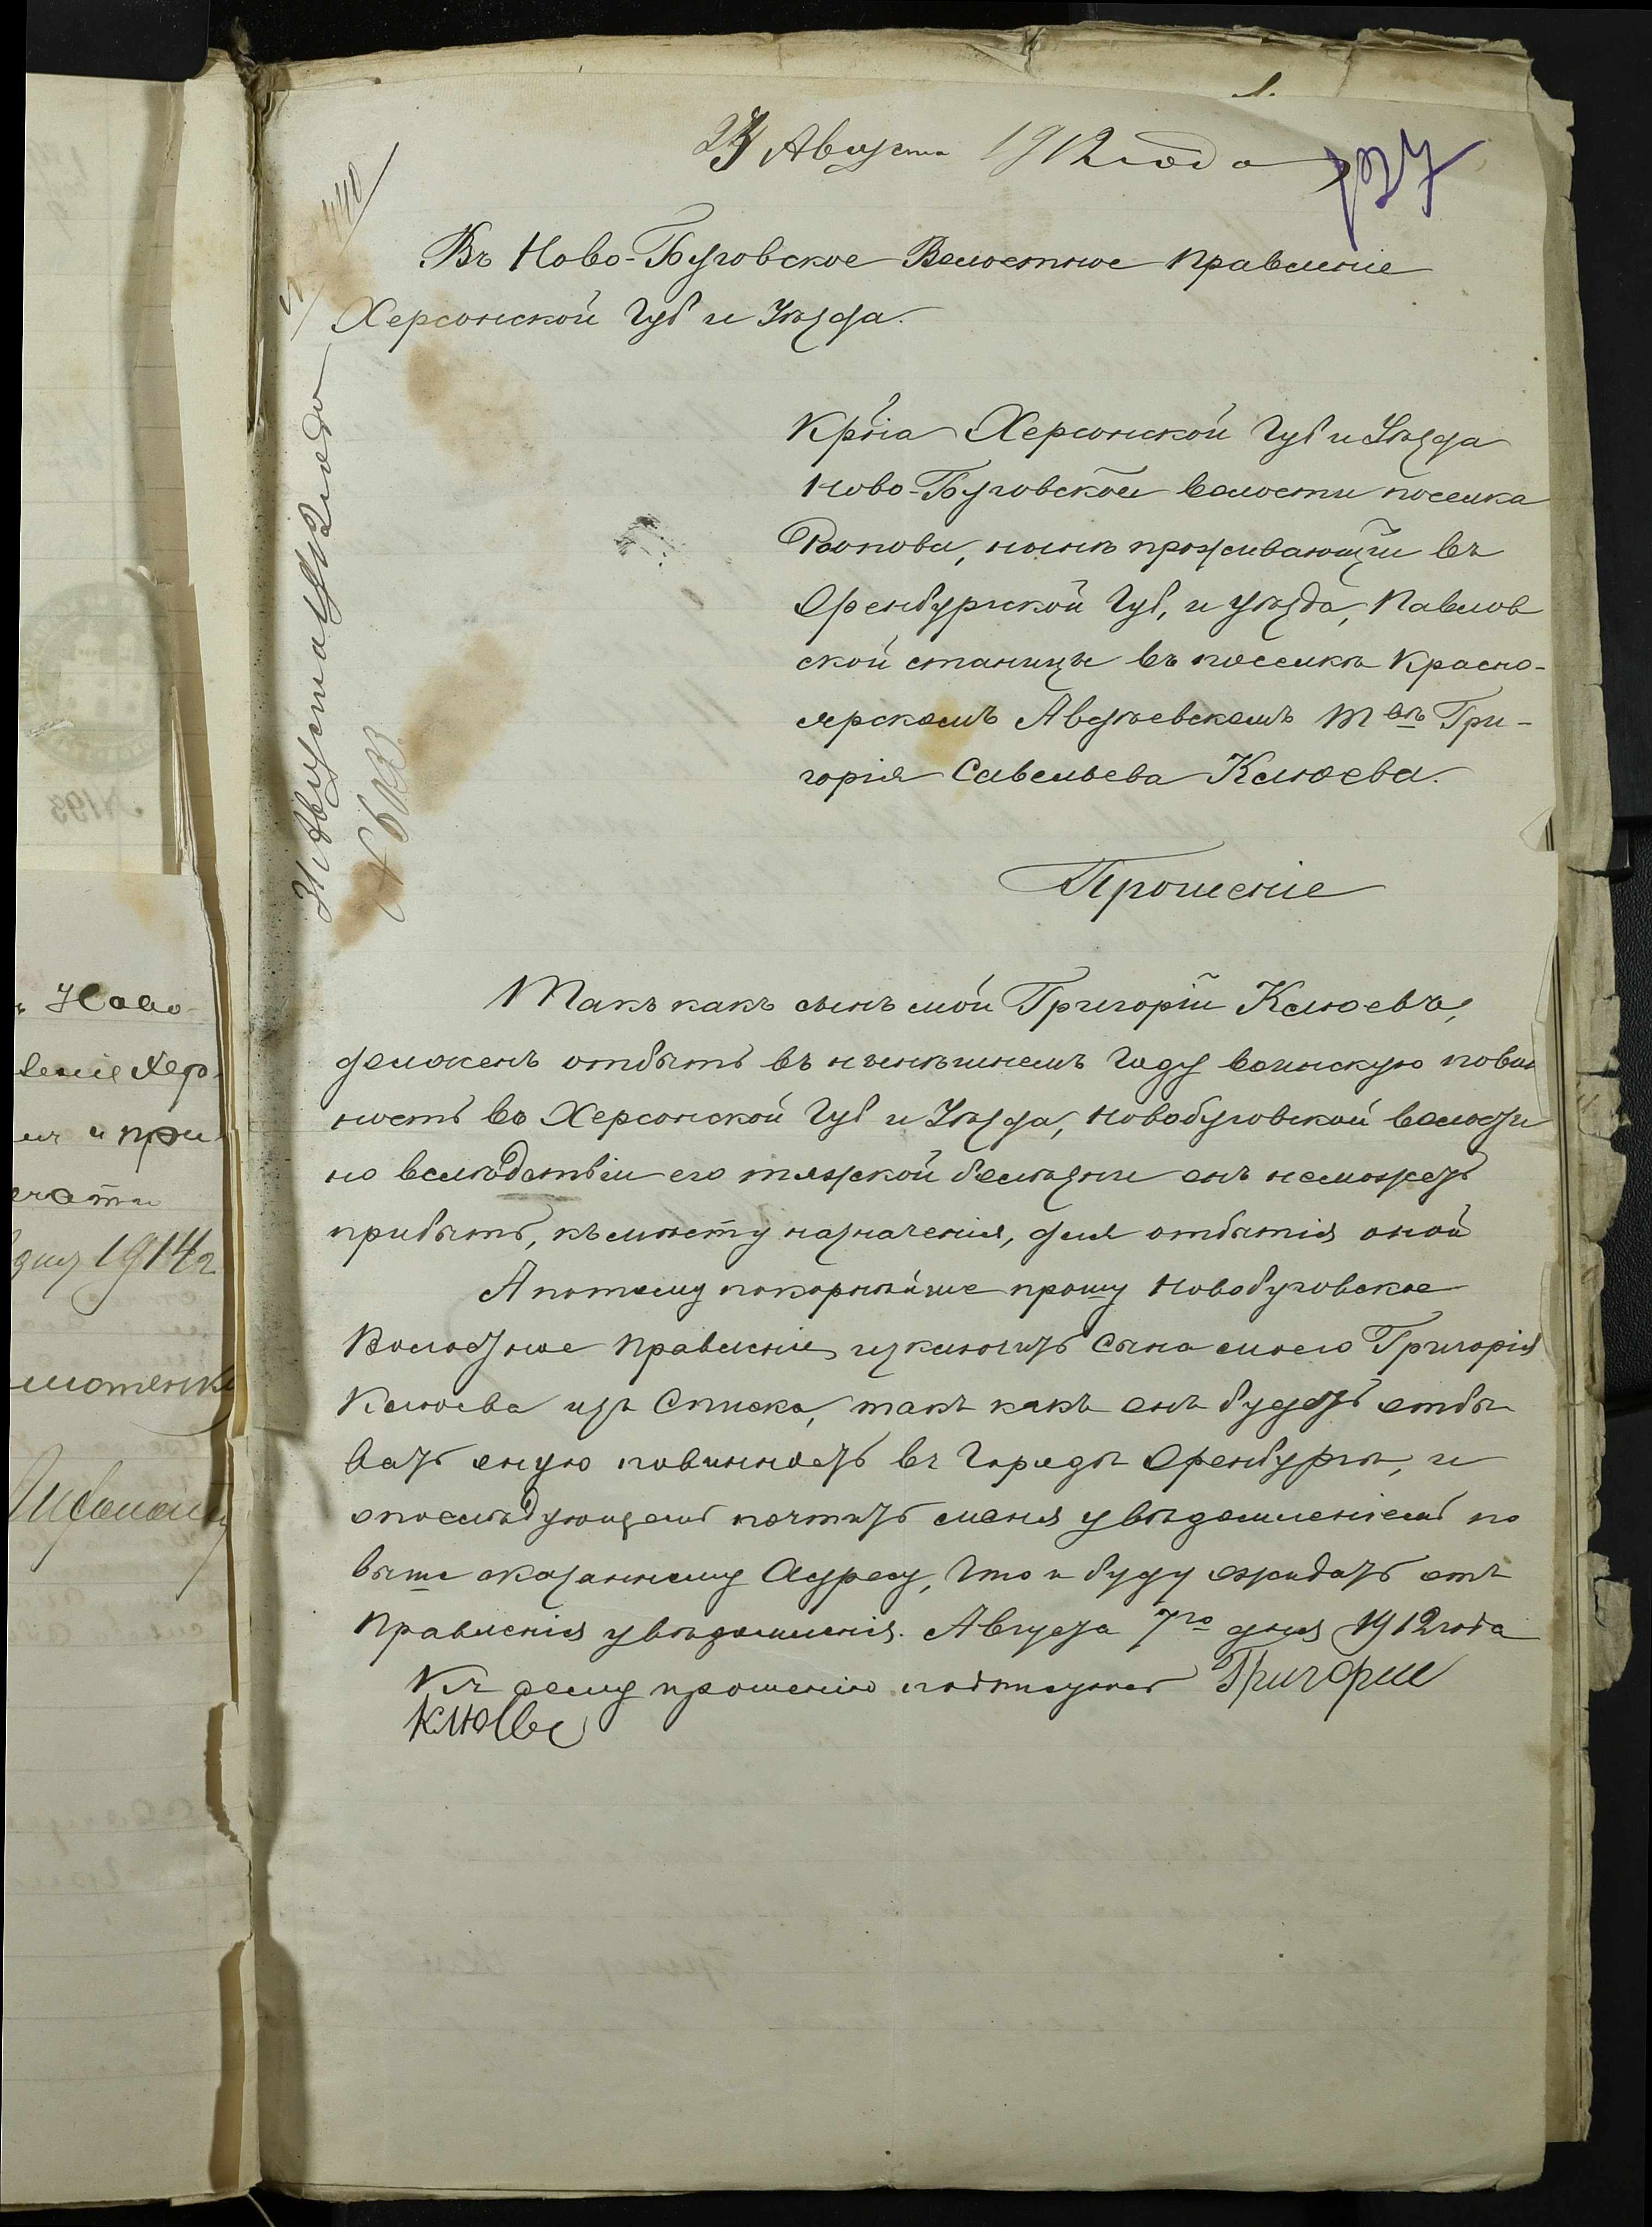 Августа 1912 года
Въ Ново-Буговское Волостное Правленіе
Херсонской Губ и Уѣзда.
Кр̑на Херсонской Губ и Уѣзда
Ново-Буговской волости поселка
нынѣ проживающій въ
Оренбургской Губ, и уѣзда, Павлов
ской станицы въ поселкѣ Красно-
ярскомъ Авдѣевскомъ Тов Гри-
горія Савельева Клюева.
Прошеніе
Такъ какъ сынъ мой Григорій Клюевъ,
долженъ отбыть въ нынѣшнемъ году воинскую повин
ность во Херсонской Губ и Уѣзда, Новобуговской волости
но вслѣдствіи его тяжкой болѣзни онъ неможетъ
прибыть, къ мѣсту назначенія, для отбытія оной
А потому покорнѣйше прошу Новобуговское
Волостное Правленіе, изключить Сына моего Григорія
Клюева изъ Списка, такъ какъ онъ будетъ отбы
вать оную повинность въ Городѣ Оренбургѣ, и
опослѣдующемъ почтить меня увѣдомленіемъ по
выше сказанному Адресу, что и буду ожидать отъ
Правленія увѣдомленія. Августа 7го дня 1912 года
Къ сему прошенію подписуюсь Григорий
Клюев
Ново-
леніе Хер-
и при
1914 г
№193